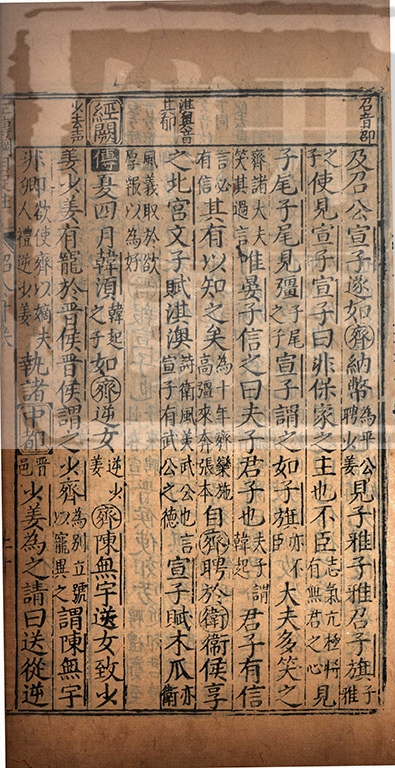 召音邵
及召公宣子遂如齊納幣為平公聘少姜見子雅子雅召子旗子雅
之子使見宣子宣子曰非保家之主也不臣志氣亢極將有無君之心見
子尾子尾見彊子尾之子宣子謂之如子旗亦不臣大夫多笑之
齊諸大夫笑其過言惟晏子信之曰夫子君子也夫子謂韓起君子有信
言必有信其有以知之矣為十年齊欒施高彊來奔張本自齊聘於衛衛侯享
淇奧音
之北宮文子賦淇澳詩衛風美武公也言宣子有武公之德宣子賦木瓜亦衛
風義取於欲厚報以為好
經闕
傳夏四月韓湏韓起之子如齊逆女逆少姜齊陳無宇送女致少
少去聲
姜少姜有寵於晉侯晉侯謂之少齊為別立號以寵異之謂陳無宇
非卿欲使齊以嫡夫人禮逆少姜執諸中都晉邑少姜為之請曰送從逆